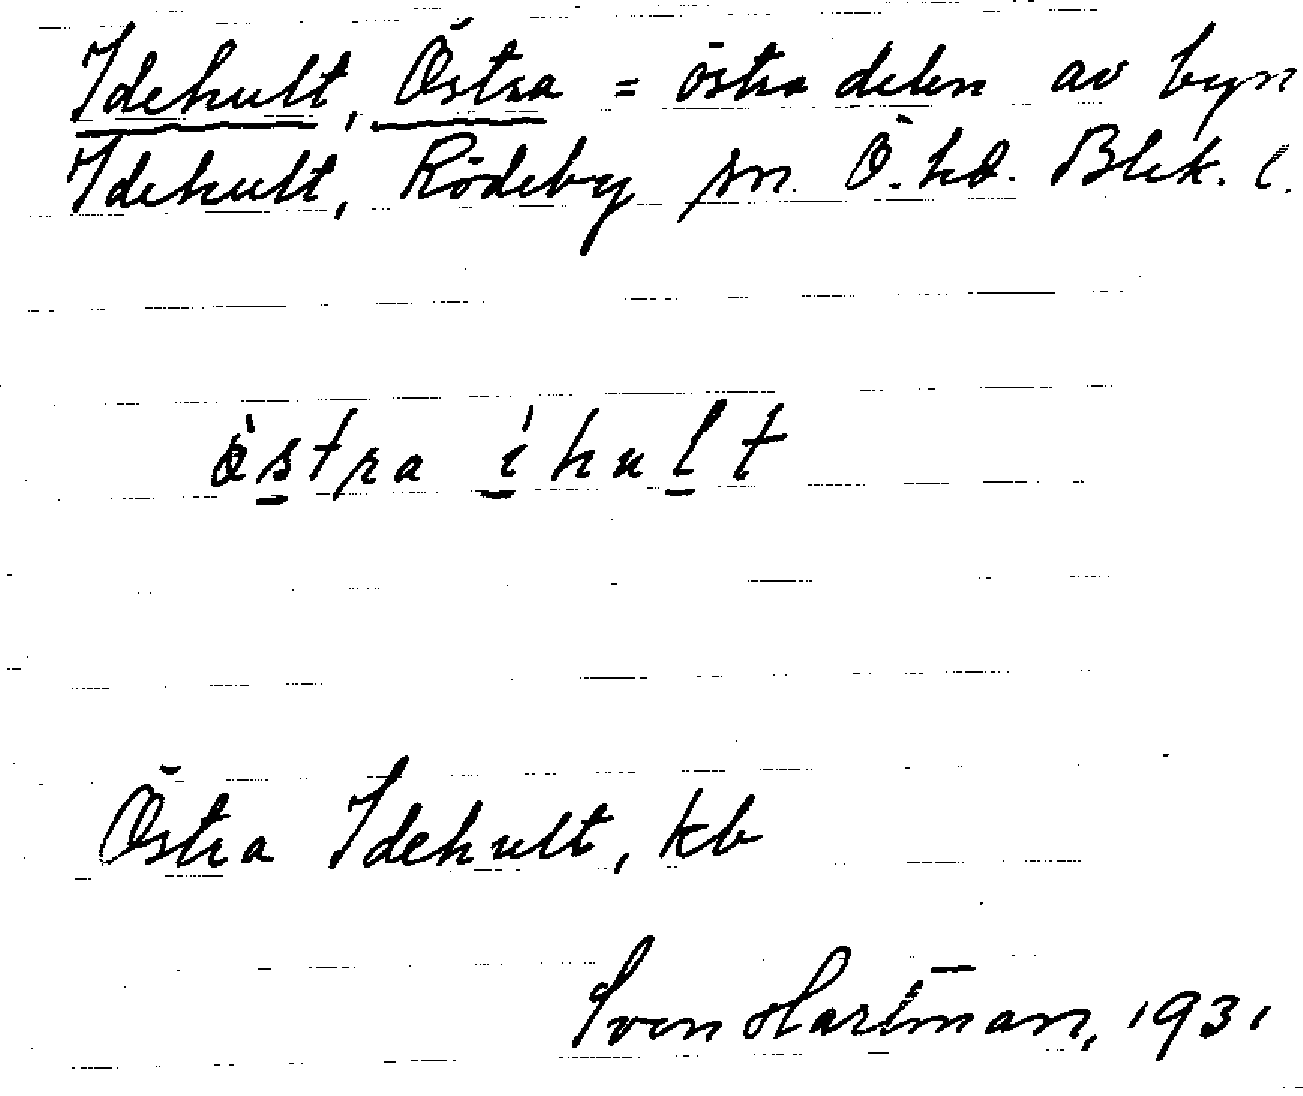 Idehult, Östra = östra delen av byn
Idehult, Rödeby sn. Ö. hd. Blek. l.
östra ihult
Östra Idehult, kb
Sven Hartman, 1931